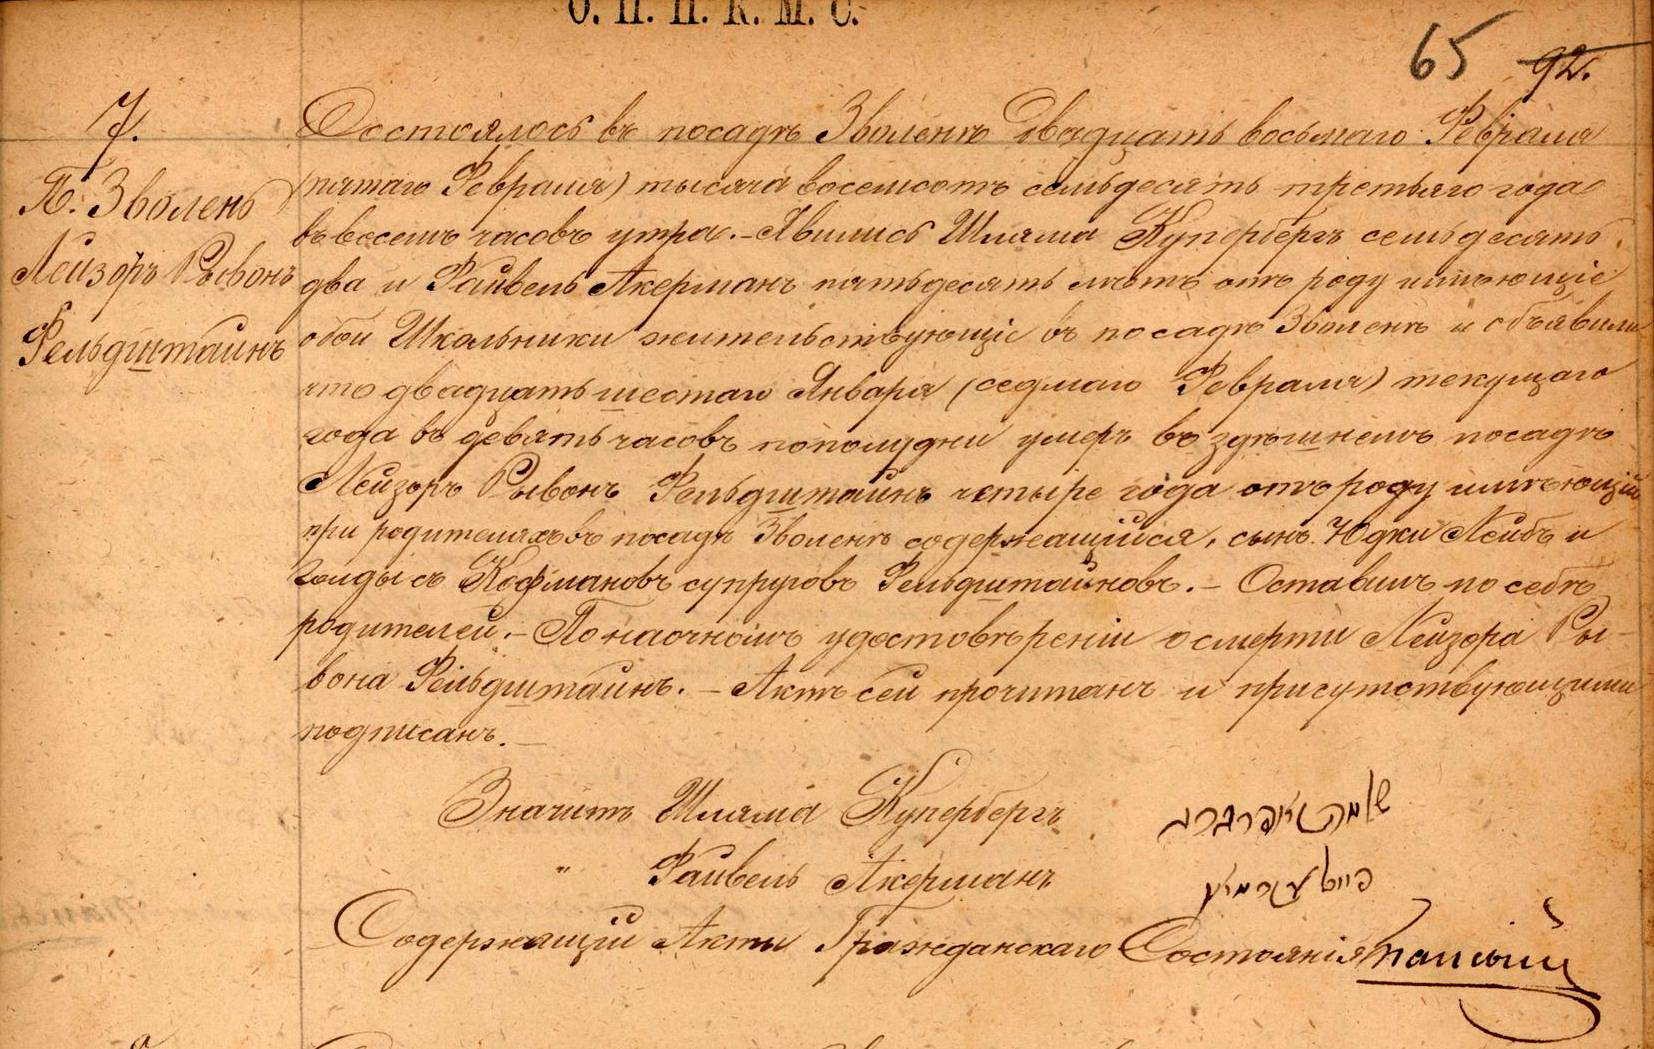 О. П. П. К. М. С.
65 92.
7.
П. Зволень
Лейзоръ Рывонъ
Фельдштайнъ
Состоялось въ посадѣ Зволенѣ Двадцать восьмаго Февраля
(пятаго Февраля) тысяча восемсотъ семьдесятъ третьяго года
въ восемь часовъ утра. – Явились Шляма Купербергъ семьдесятъ
два и Файвель Акерманъ пятьдесятъ лѣтъ отъ роду имѣющіе
обои Школьники жительствующіе въ посадѣ Зволенѣ и объявили
что двадцать шестаго Января (седмаго Февраля) текущаго
года въ девять часовъ пополудни умеръ въ здѣшнемъ посадѣ
Лейзоръ Рывонъ Фельдштайнъ четыре года отъ роду имѣющій
при родителяхъ въ посадѣ Зволенѣ содержащийся, сынъ Юдки Лейбъ и
Голды съ Кофмановъ супруговъ Фельдштайновъ. – Оставилъ по себѣ
родителей. – По наочномъ удостовѣреніи о смерти Лейзора Ры-
вона Фельдштайнъ. – Актъ сей прочитанъ и присутствующими
подписанъ. –
Значитъ Шляма Купербергъ שלמה קופרברג
" Файвель Акерманъ פייול אקרמן
Содержащій Акты Гражданскаго Состоянія